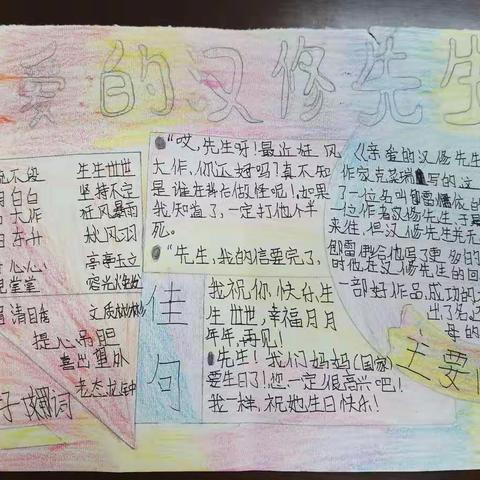 爱的汉修先生
生生世世
明白白 坚持不定
大作 狂风暴雨
东升 秋风羽
心心 亭亭玉立
堂堂
清日秀 文质彬彬
提心吊胆
喜出望外
老态龙钟
好词
"哎,先生呀!最近狂风
大作,你还好吗?真不知
是谁在抖作做怪呢!如果
我知道了,一定打他个半
死。
"先生,我的信要完了,
佳句
我祝你,快乐生
生世世,幸福月月
年年,再见!
先生!我们妈妈(国家)
要生日了!您一定很高兴吧!
我一样,祝她生日快乐!
《亲爱的汉修先生
作家克莱瑞 写的这
了一位名叫 雷 依的
一位作者汉修先生于
来往,但汉修先生
雷 给他写了更多的
时他在汉修先生的回
一部好作品,成功的
出了名还
母的
主要